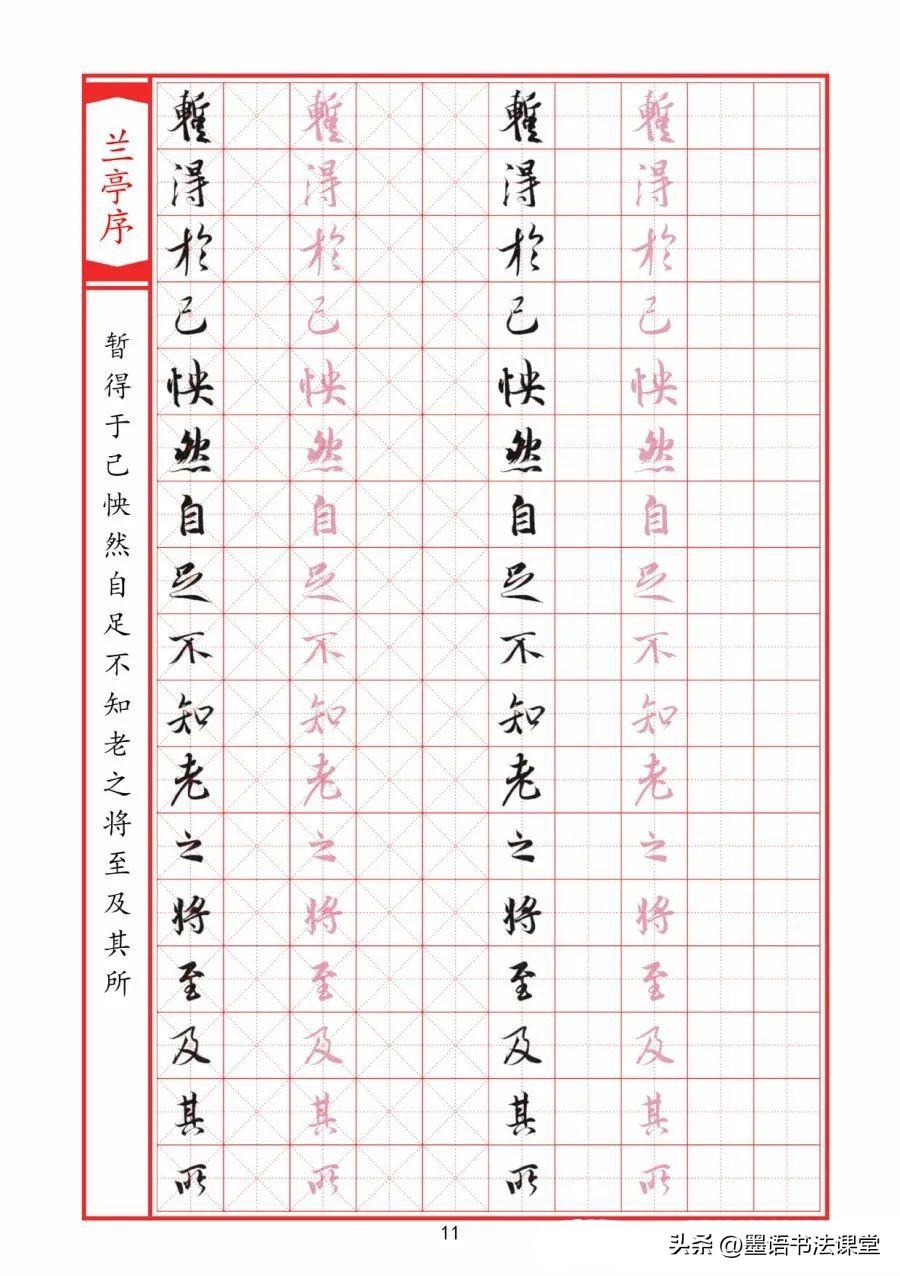 兰亭序
暂得于己怏然自足不知老之将至及其所
蹔得於己怏然自足不知老之将至及其所
蹔得於己怏然自足不知老之将至及其所
蹔得於己怏然自足不知老之将至及其所
蹔得於己怏然自足不知老之将至及其所
11
头条 @墨语书法课堂